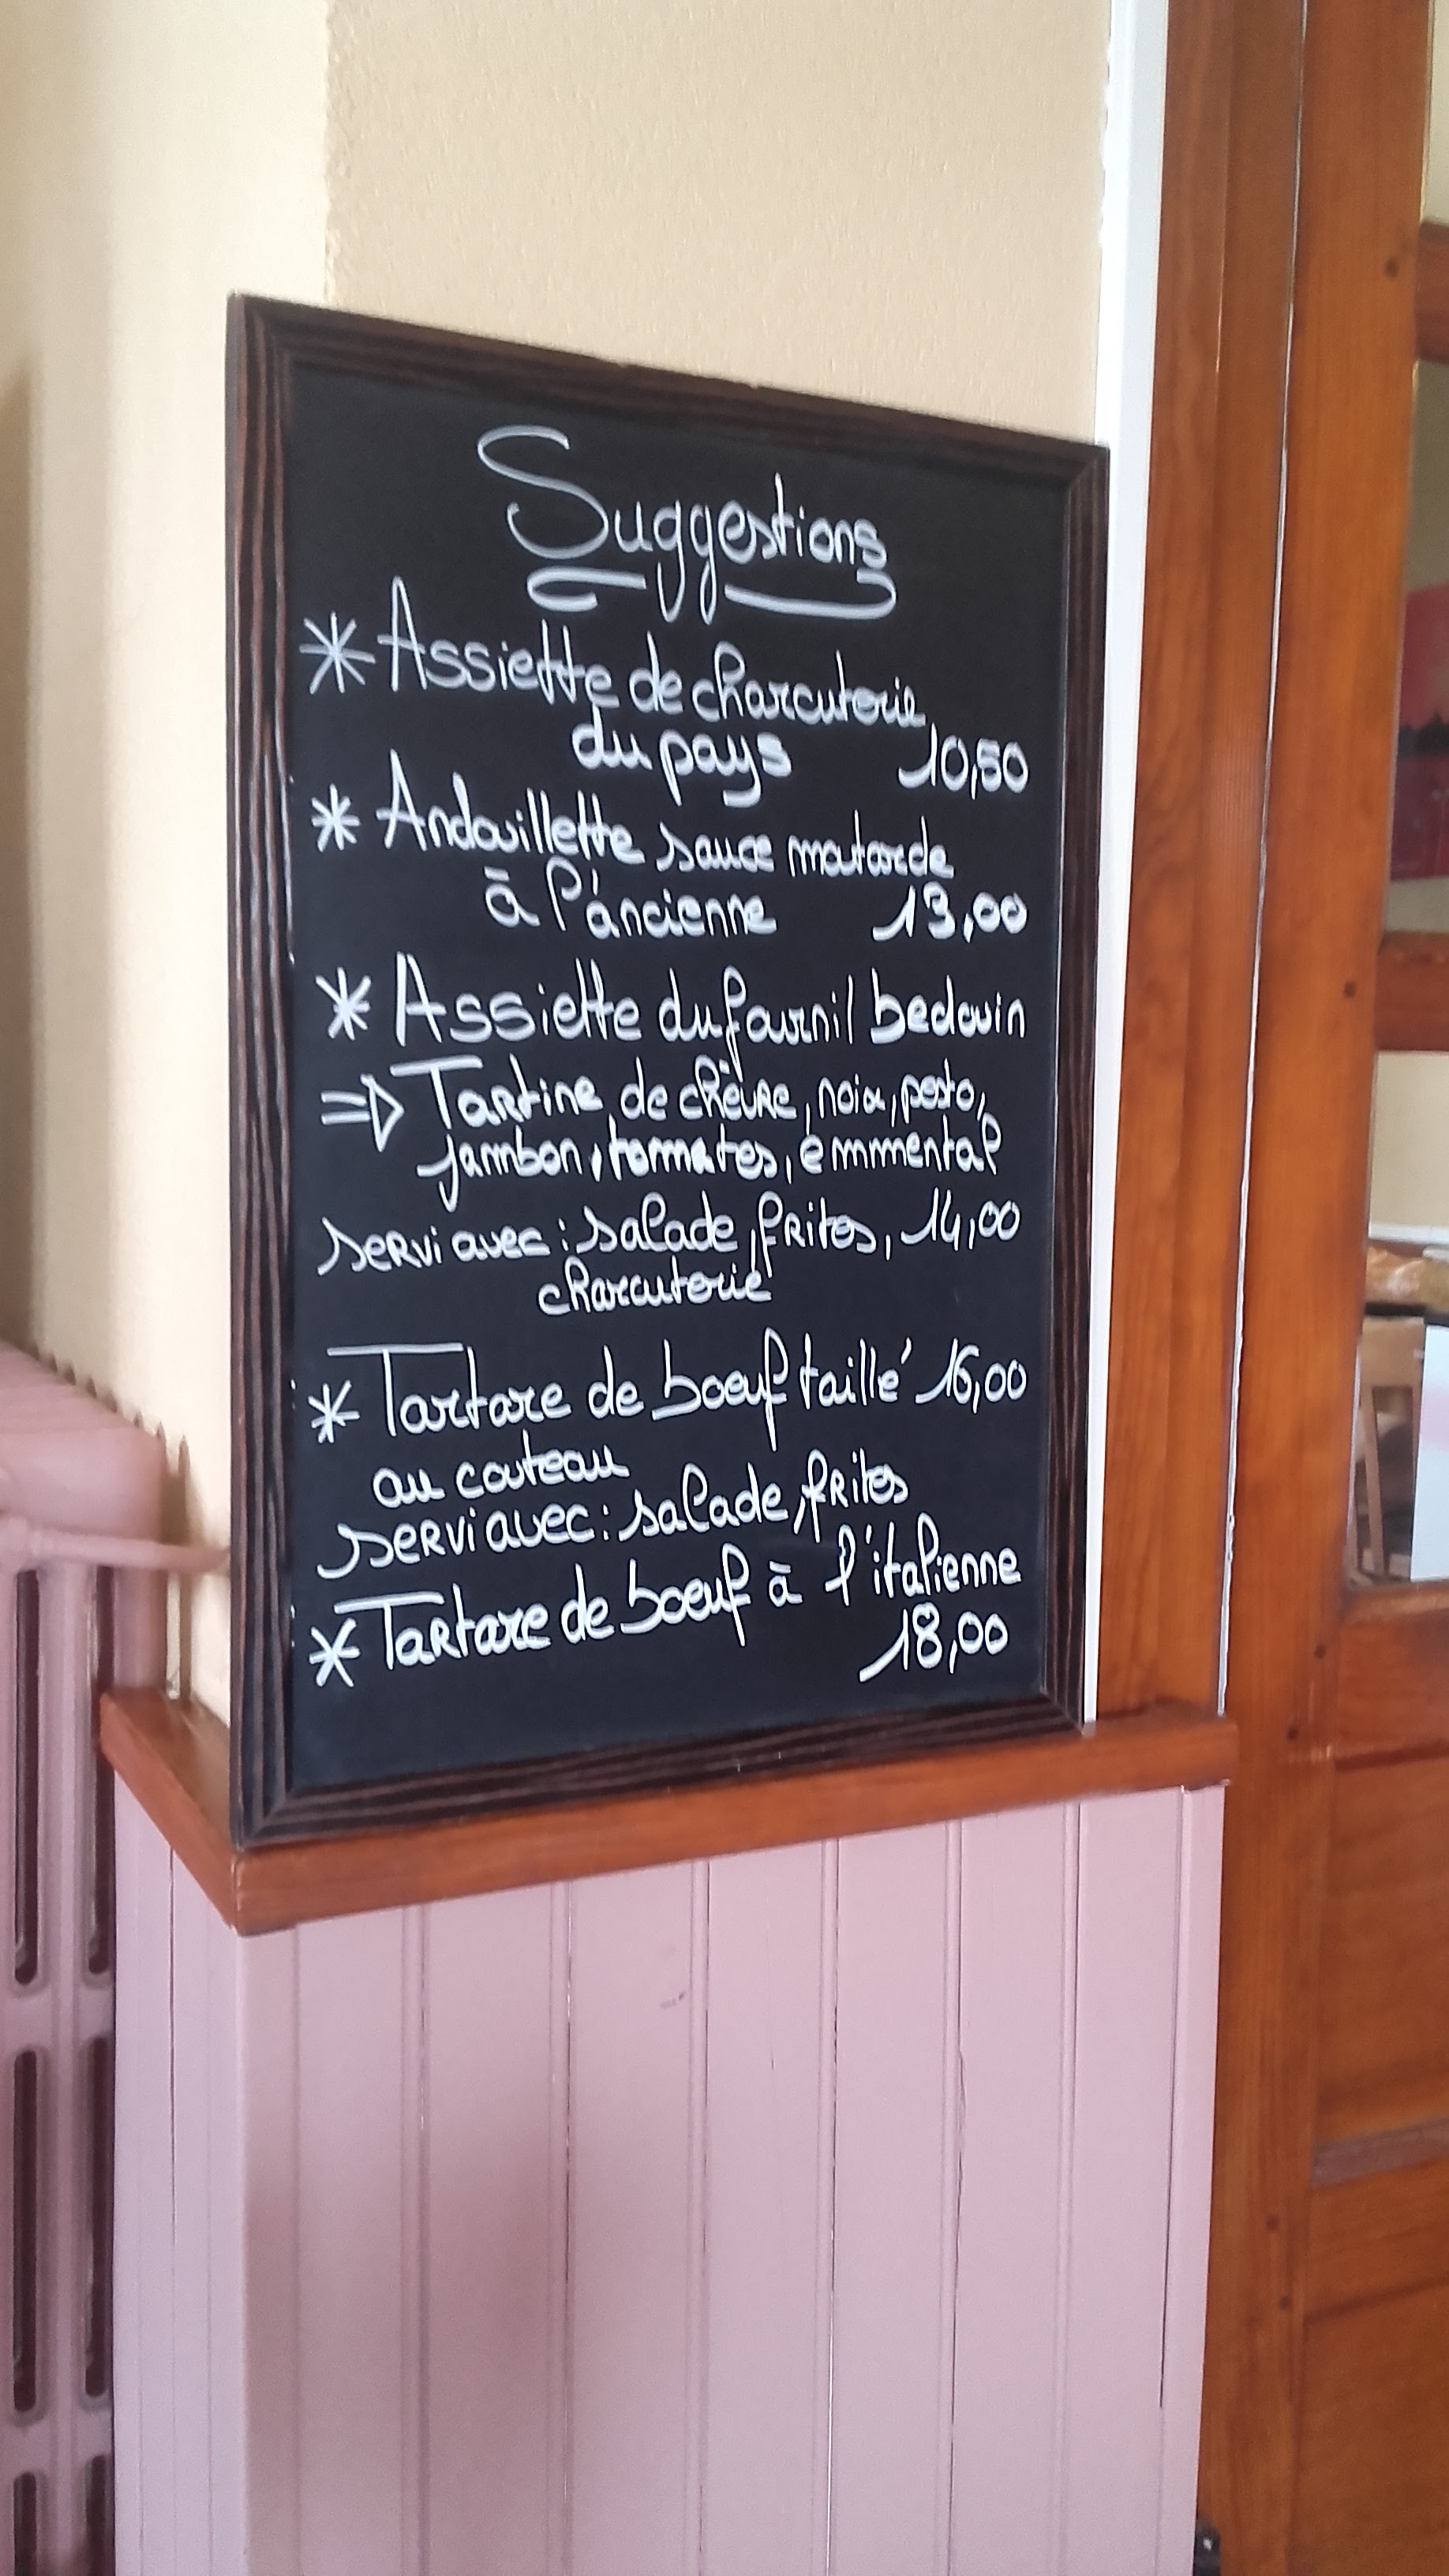 Suggestions
* Assiette de charcuterie
du pays 10,50
* Andouillette sauce moutarde
à l'ancienne 13,00
* Assiette du fournil bedouin
⇒ Tartine de chèvre, noix, pesto,
jambon, tomates, emmental
servi avec : salade, frites, 14,00
charcuterie
* Tartare de boeuf taillé 16,00
au couteau
servi avec : salade, frites
* Tartare de boeuf à l'italienne
18,00